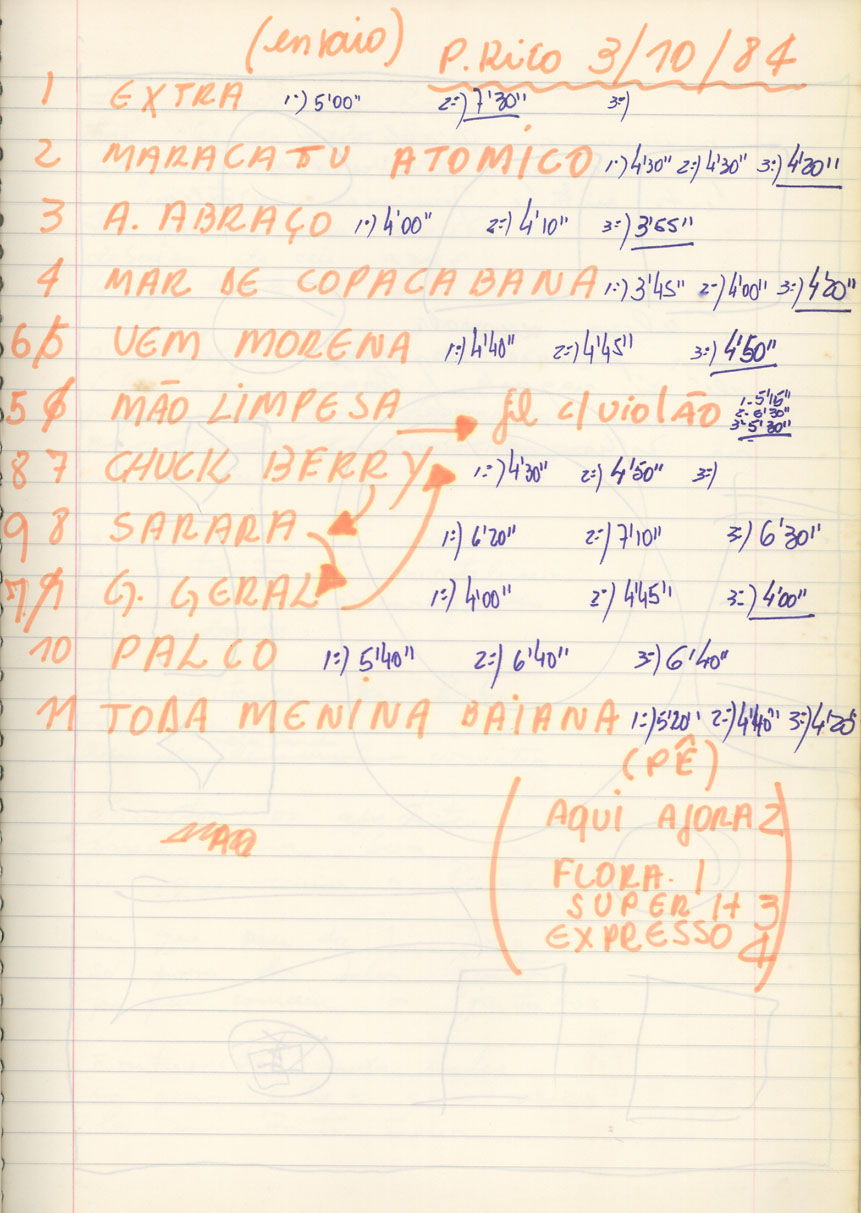 (ensaio) P. RICO 3/10/84
1 EXTRA 1=) 5'00" 2=) 7'30" 3=)
2 MARACATU ATOMICO 1=) 4'30" 2=) 4'30" 3=) 4'20"
3 A. ABRAÇO 1=) 4'00" 2=) 4'10" 3=) 3'55"
4 MAR DE COPACABANA 1=) 3'45" 2=) 4'00" 3=) 4'20"
6 5 VEM MORENA 1=) 4'40" 2=) 4'45" 3=) 4'50"
5 6 MÃO LIMPESA gil c/ violão 1- 5'15"
2- 6'30"
3- 5'30"
8 7 CHUCK BERRY 1=) 4'30" 2=) 4'50" 3=)
9 8 SARARA 1=) 6'20" 2=) 7'10" 3=) 6'30"
7 9 G. GERAL 1=) 4'00" 2=) 4'45" 3=) 4'00"
10 PALCO 1=) 5'40" 2=) 6'40" 3=) 6'40"
11 TODA MENINA BAIANA 1=) 5'20" 2=) 4'40" 3=) 4'20"
(PÊ)
AQUI AGORA 2
FLORA. 1
SUPER H 3
EXPRESSO 4